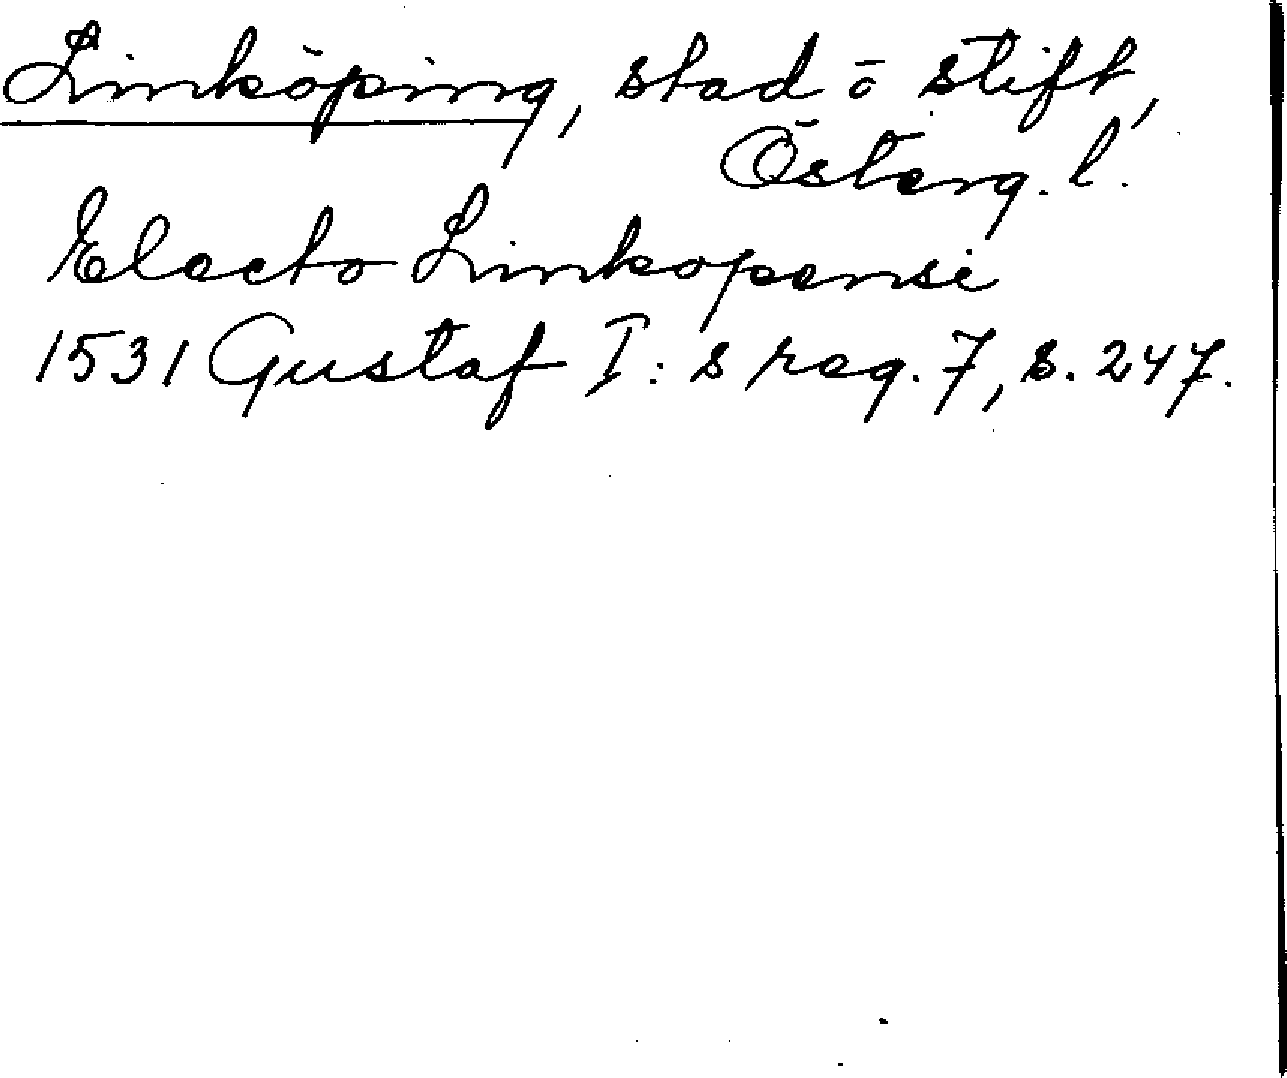 Linköping, stad o stift,
Österg. l.
Electo Linkopensi
1531 Gustaf I: s reg. 7, s. 247.